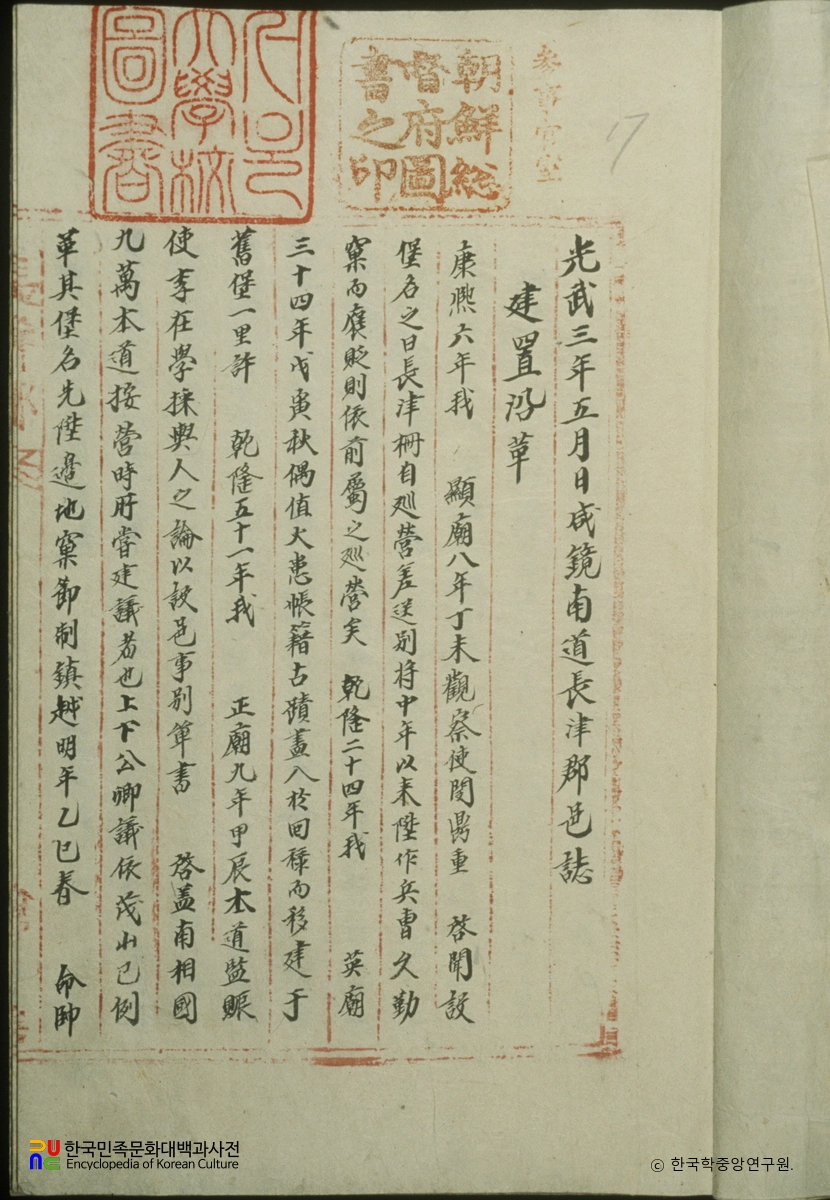 서울大學校圖書
朝鮮總督府圖書之印
17
光武三年五月日咸鏡南道長津郡邑誌
建置沿革
康熙六年我 顯廟八年丁未觀察使閔鼎重 啓開設
堡名之曰長津柵自廵營差送別將中年以來陞作兵曹久勤
窠而襃貶則依前屬之廵營矣 乾隆二十四年我 英廟
三十四年戊寅秋偶值火患帳籍古蹟盡入於回祿而移建于
舊堡一里許 乾隆五十一年我 正廟九年甲辰本道監賑
使李在學採輿人之論以設邑事別單書 啓盖南相國
九萬本道按營時所嘗建議者也上下公卿議依茂山已例
革其堡名先陞邊地窠節制鎮越明年乙巳春 命帥
한국민족문화대백과사전
Encyclopedia of Korean Culture
© 한국학중앙연구원.